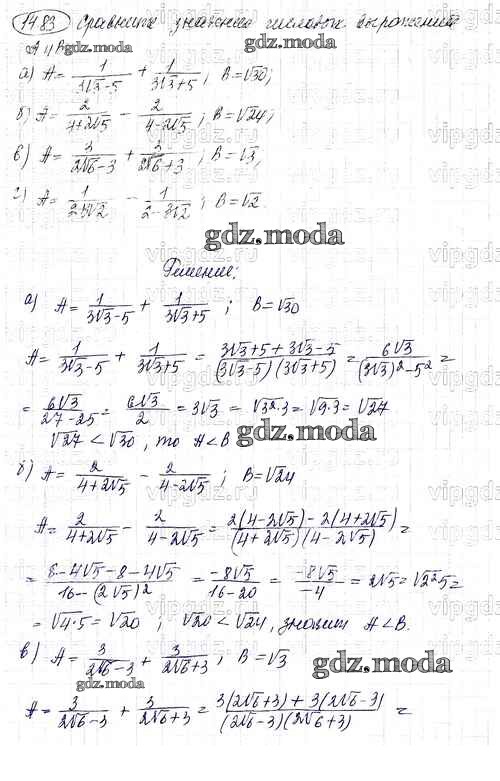 1483 Сравнить значения числовых выражений
А и В
gdz.moda
а) A = 1/(3√3-5) + 1/(3√3+5); B=√30;
б) A = 2/(4+2√5) - 2/(4-2√5); B=√24;
в) A = 3/(2√6-3) + 3/(2√6+3); B=√3,
г) A = - ; B=√2.
gdz.moda
Решение:
а) A = 1/(3√3-5) + 1/(3√3+5); B=√30
A = 1/(3√3-5) + 1/(3√3+5) = (3√3+5+3√3-5)/((3√3-5)(3√3+5)) = 6√3/((3√3)²-5²) =
= 6√3/(27-25) = 6√3/2 = 3√3 = √3²·3 = √9·3 = √27
√27 < √30, то A<B
gdz.moda
б) A = 2/(4+2√5) - 2/(4-2√5); B=√24
A = 2/(4+2√5) - 2/(4-2√5) = (2(4-2√5)-2(4+2√5))/((4+2√5)(4-2√5)) =
= (8-4√5-8-4√5)/(16-(2√5)²) = -8√5/(16-20) = -8√5/-4 = 2√5 = √2²5 =
= √4·5 = √20; √20 < √24, значит A<B.
в) A = 3/(2√6-3) + 3/(2√6+3); B=√3
gdz.moda
gdz.moda
A = 3/(2√6-3) + 3/(2√6+3) = (3(2√6+3)+3(2√6-3))/((2√6-3)(2√6+3)) =